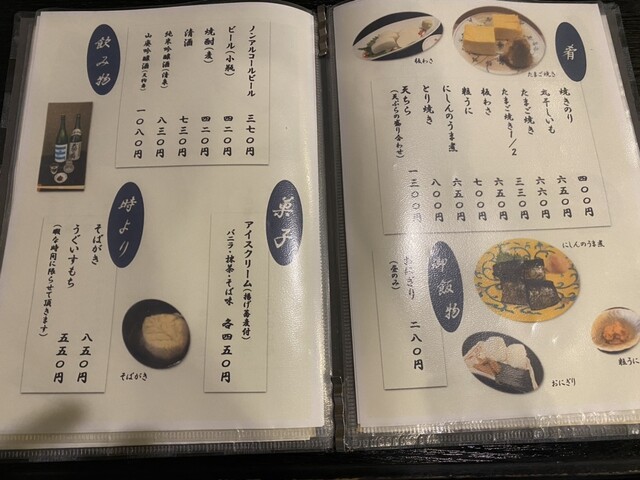 肴
板わさ
たまご焼き
焼きのり 四〇〇円
丸干しいも 六五〇円
たまご焼き 六六〇円
たまご焼き1/2 三三〇円
板わさ 六五〇円
粒うに 七〇〇円
にしんのうま煮 六五〇円
とり焼き 八〇〇円
天ちら 一三〇〇円
(天ぷらの盛り合わせ)
御飯物
おにぎり 二八〇円
(昼のみ)
にしんのうま煮
粒うに
おにぎり
飲み物
ノンアルコールビール 三七〇円
ビール(小瓶) 四二〇円
焼酎(麦) 四二〇円
清酒 七三〇円
純米吟醸酒(清泰) 八三〇円
山廃吟醸酒(天狗舞) 一〇八〇円
菓子
アイスクリーム(揚げ蕎麦付)
バニラ・抹茶・そば味 各四五〇円
時より
そばがき 八五〇円
うぐいすもち 五五〇円
(暇な時間に限らせて頂きます)
そばがき